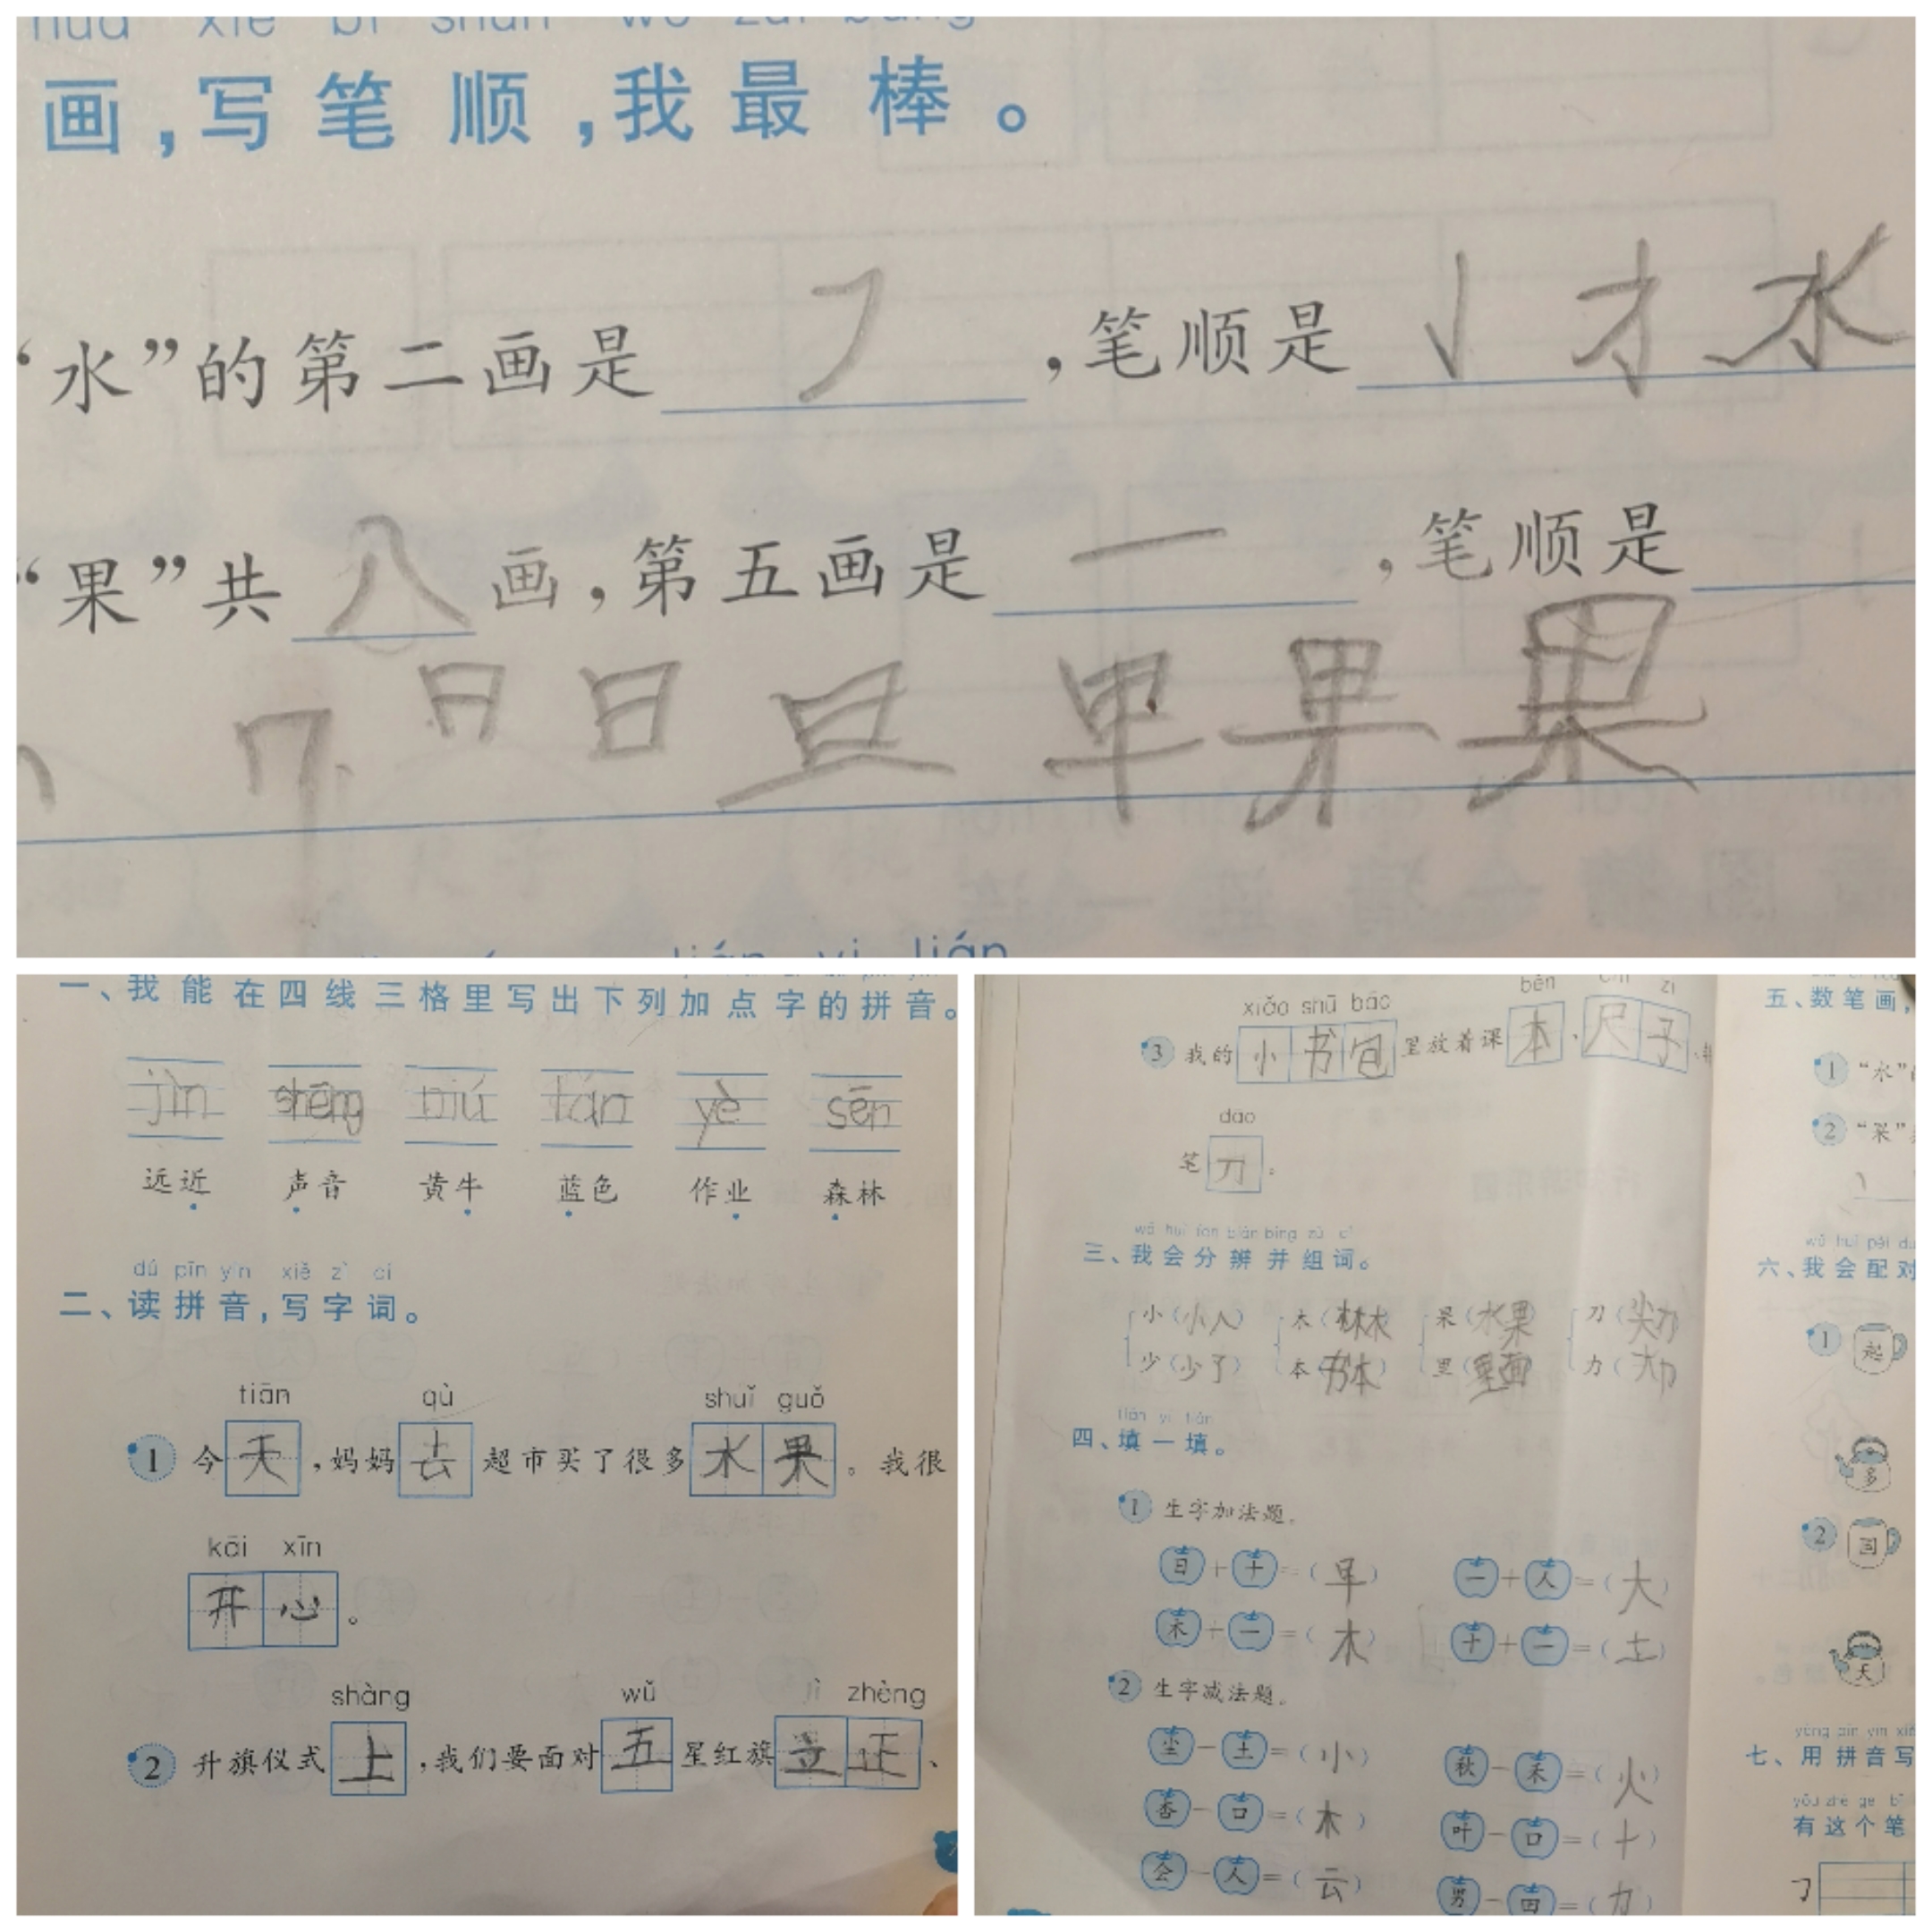 huà xiě bǐ shùn wǒ zuì bàng
画，写笔顺，我最棒。
“水”的第二画是㇇，笔顺是亅 才 水
“果”共八画，第五画是一，笔顺是
日 日 旦 早 果 果
lián yi lián
一、我能在四线三格里写出下列加点字的拼音。
jìn shēng niú lán yè sēn
远近 声音 黄牛 蓝色 作业 森林
dú pīn yīn xiě zì cí
二、读拼音，写字词。
tiān qù shuǐ guǒ
1 今天，妈妈去超市买了很多水果。我很
kāi xīn
开心。
shàng wǔ lì zhèng
2 升旗仪式上，我们要面对五星红旗立正、
xiǎo shū bāo běn chǐ zi
3 我的小书包里放着课本、尺子、
dao
笔刀。
wǒ huì fēn biàn bìng zǔ cí
三、我会分辨并组词。
小（小人） 木（林木） 果（水果） 刀（尖刀）
少（少了） 本（书本） 里（里面） 力（大力）
tián yi tián
四、填一填。
1 生字加法题。
日+十=（早） 一+人=（大）
禾+一=（木） 十+一=（土）
2 生字减法题。
尘-土=（小） 秋-禾=（火）
香-口=（木） 叶-口=（十）
会-人=（云） 男-田=（力）
五、数笔画，
1 “水”
2 “果”
wǒ huì pèi duì
六、我会配对
1 起
多
2 回
天
yòng pīn yīn xiě
七、用拼音写
yǒu zhè ge bǐ
有这个笔
㇆